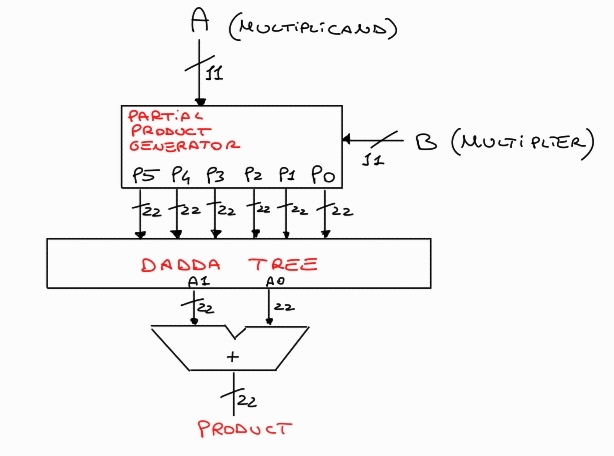 A (MULTIPLICAND)
11
PARTIAL
PRODUCT
GENERATOR
B (MULTIPLIER)
11
P5 P4 P3 P2 P1 P0
22 22 22 22 22 22
DADDA TREE
A1 A0
22 22
+
22
PRODUCT